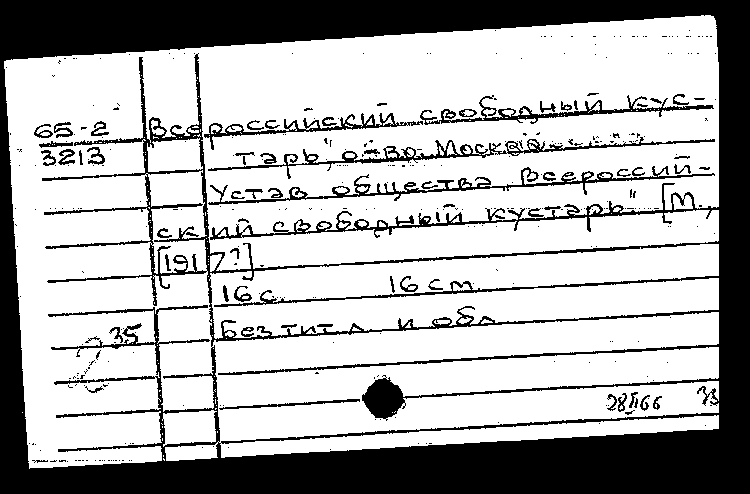 65-2 „Всероссийский свободный кус-
3213 тарь", о-во. Москва.
Устав общества „Всероссий-
ский свободный кустарь." [М.,
[191 7?].
16 с. 16 см.
Без тит. л. и обл.
35
2
28 II 66